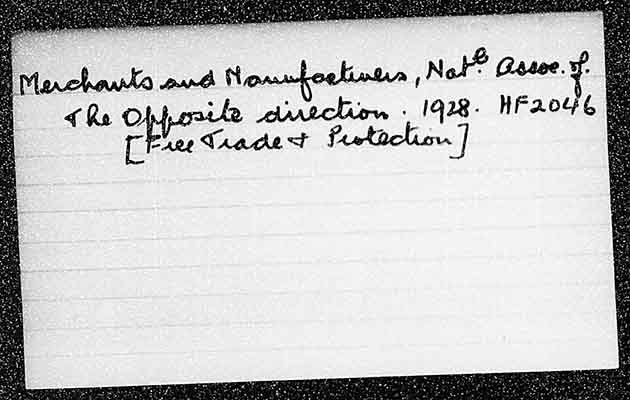 Merchants and Manufacturers, Natl. Assoc. of.
The Opposite direction. 1928. HF2046
[Free Trade & Protection]